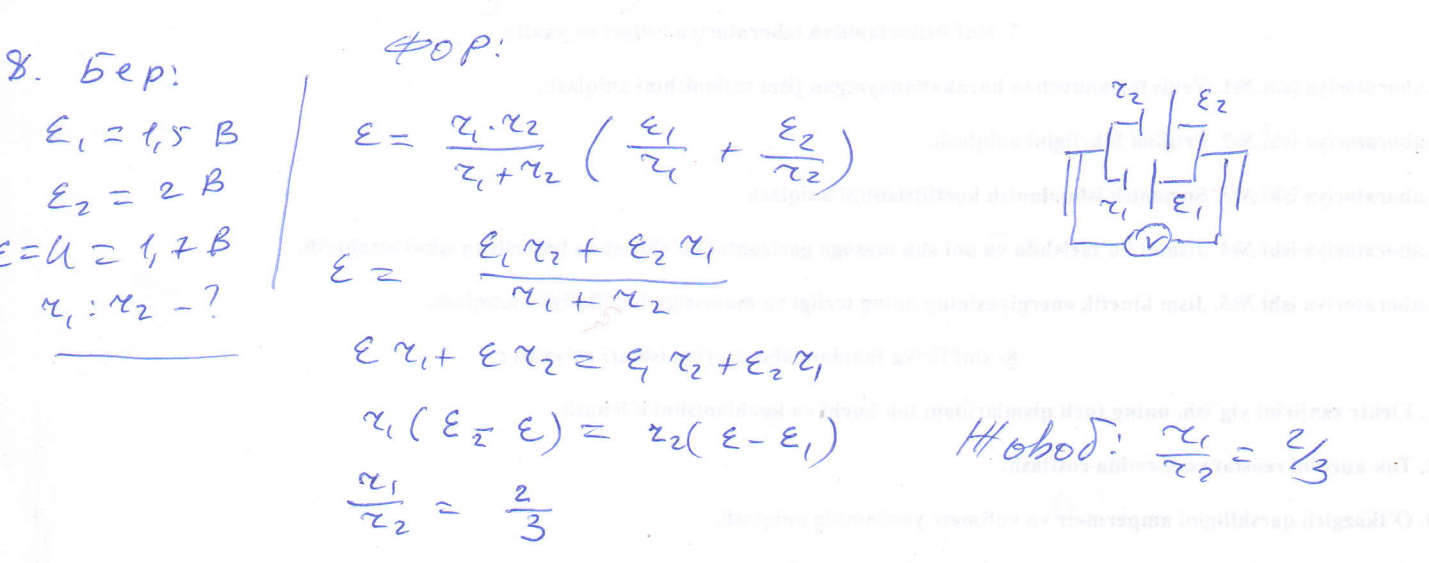 8. Бер:
ε₁ = 1,5 В
ε₂ = 2 В
ε = U = 1,7 В
r₁ : r₂ - ?
Фор:
ε = r₁·r₂ / (r₁ + r₂) ( ε₁/r₁ + ε₂/r₂ )
ε = (ε₁ r₂ + ε₂ r₁) / (r₁ + r₂)
ε r₁ + ε r₂ = ε₁ r₂ + ε₂ r₁
r₁ ( ε₂ - ε ) = r₂ ( ε - ε₁ )
r₁/r₂ = 2/3
r₂ ε₂
r₁ ε₁
V
Жовоб: r₁/r₂ = 2/3